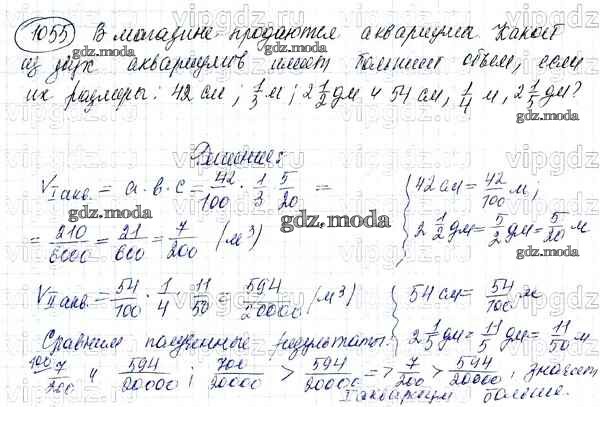 1055 В магазине продаются аквариумы. Какой
из двух аквариумов имеет больший объем, если
их размеры: 42 см; 1/3 м; 2 1/2 дм и 54 см, 1/4 м, 2 1/5 дм?
Решение:
V I акв. = a · b · c = 42/100 · 1/3 · 5/20 =
= 210/6000 = 21/600 = 7/200 (м³)
42 см = 42/100 м;
2 1/2 дм = 5/2 дм = 5/20 м
V II акв. = 54/100 · 1/4 · 11/50 = 594/20000 (м³)
54 см = 54/100 м
2 1/5 дм = 11/5 дм = 11/50 м
Сравним полученные результаты:
100/ 7/200 и 594/20000; 700/20000 > 594/20000 => 7/200 > 594/20000; значит
I аквариум больше.
gdz.moda
vipgdz.ru